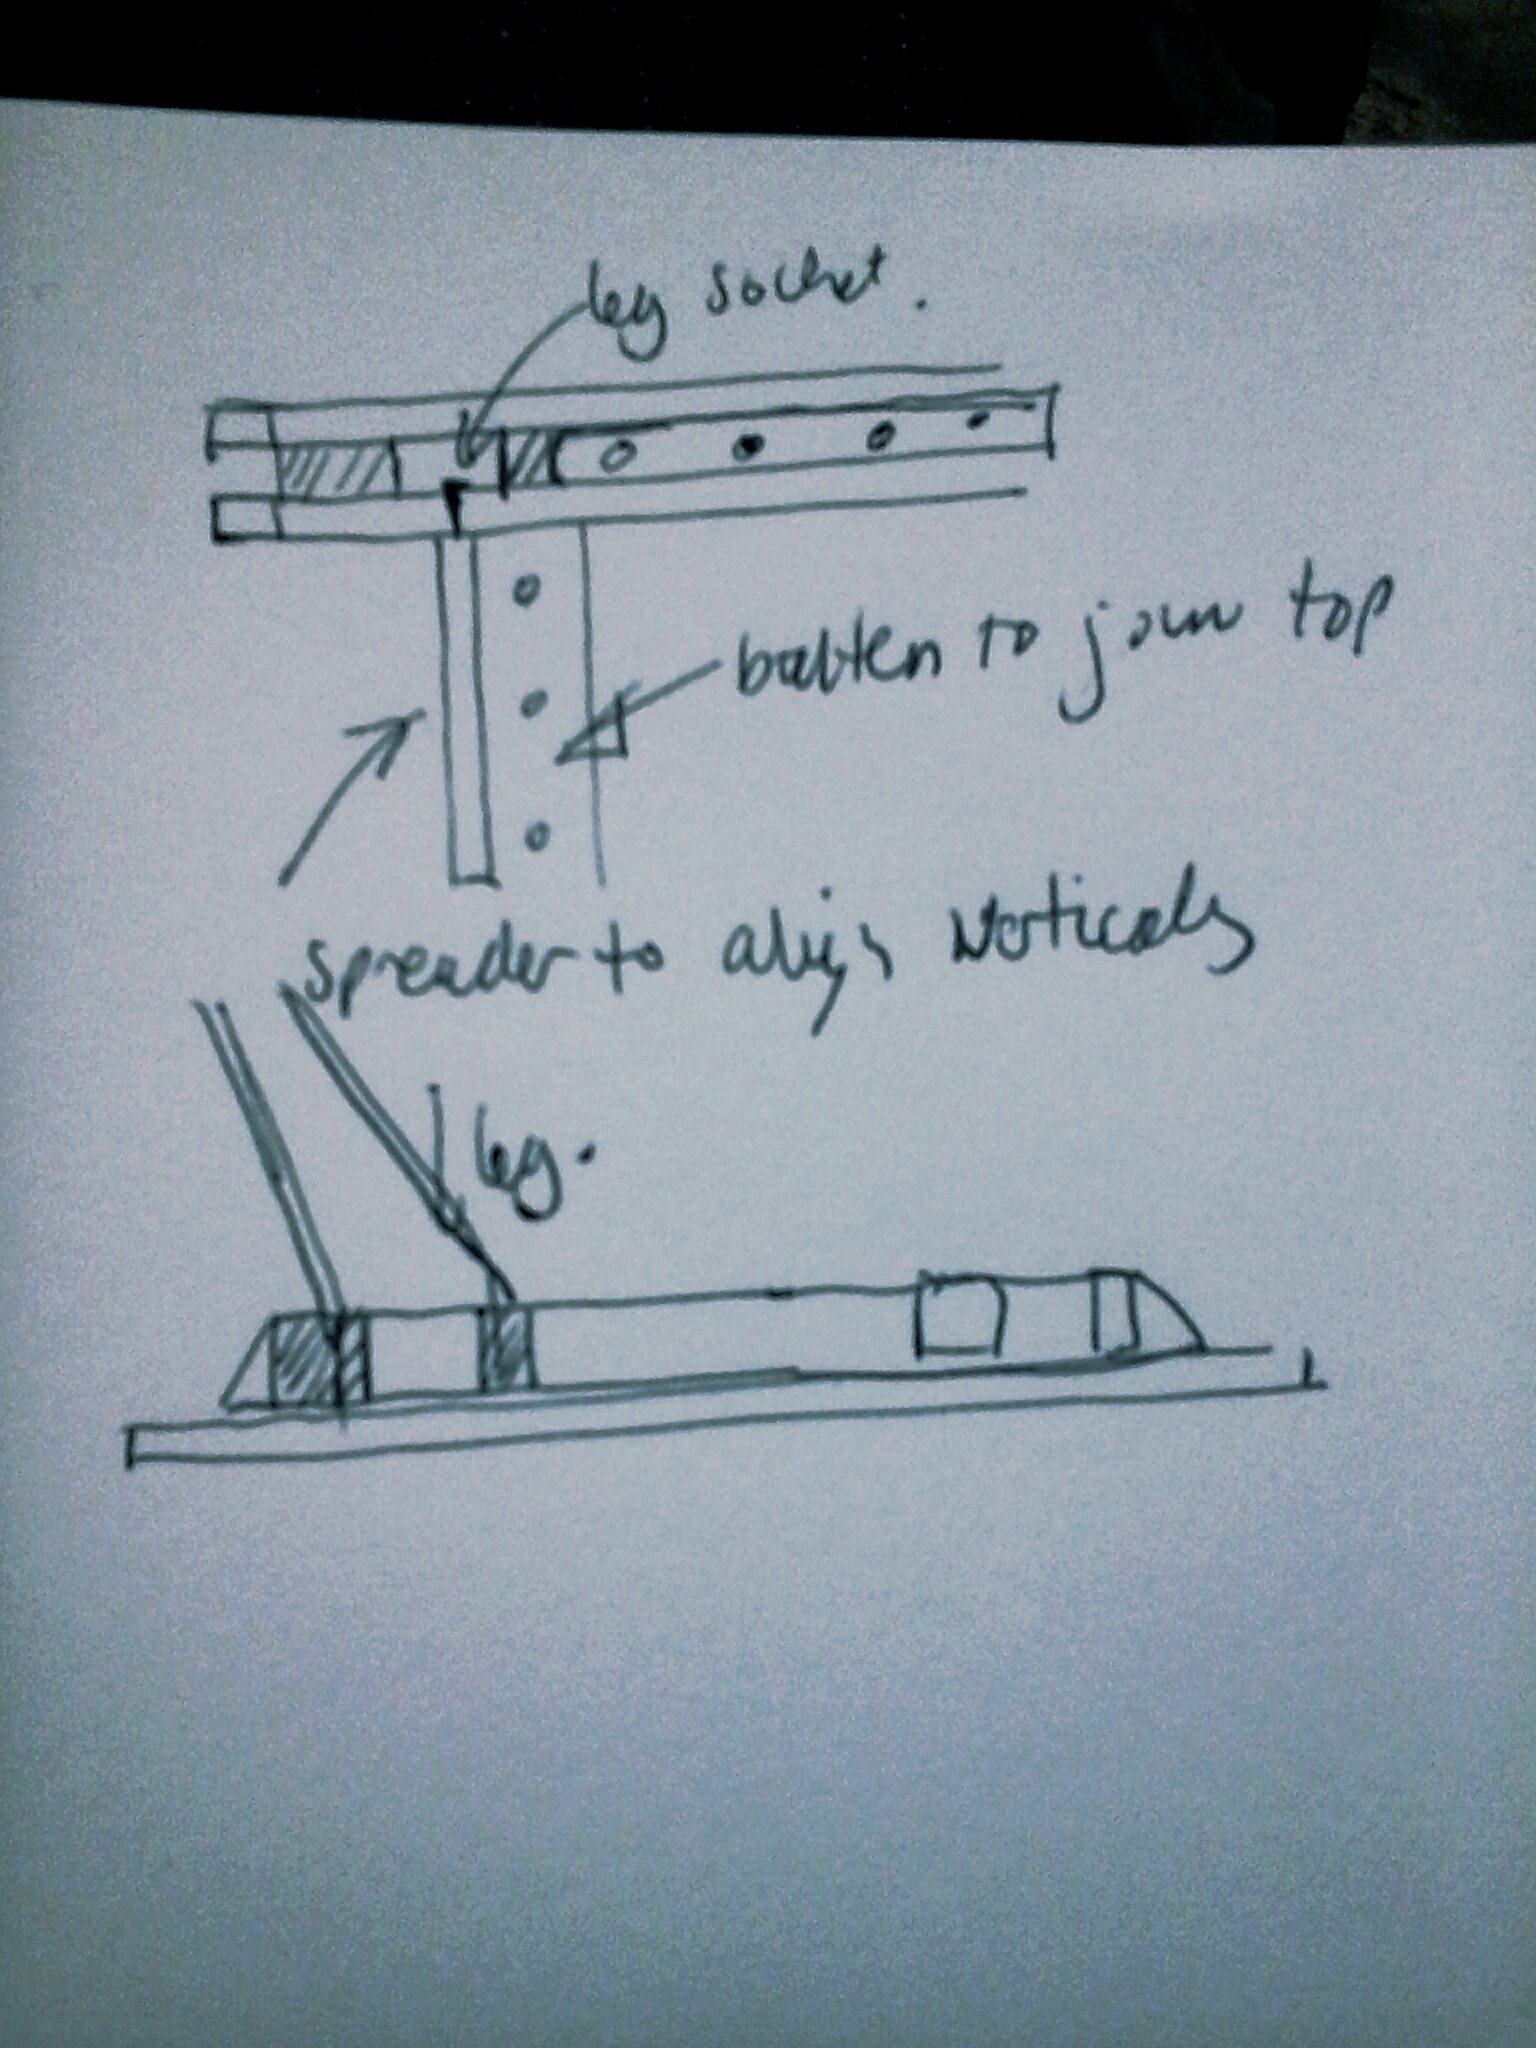 leg socket.
batten to join top
spreader to align verticals
leg.